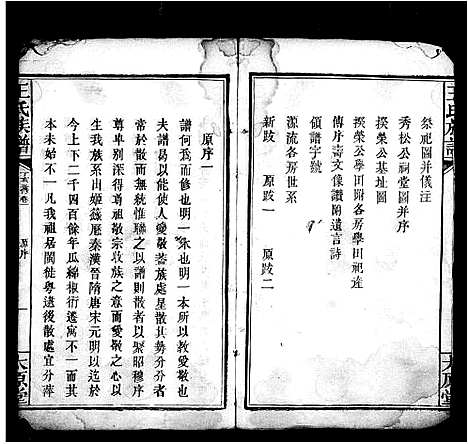 王氏族譜
祭祀圖并儀注
秀松公祠堂圖并序
撰榮公基址圖
撰榮公學田附各房學田祀產
傳序壽文像讚附遺言詩
領譜字號
源流各房世系
新跋 原跋一 原跋二
太原堂
原序一
譜何爲而修也明一本也一本所以教愛敬也
夫譜曷以能使人愛敬蓋族大其勢分分者
常於散而無統惟聯之以譜則散者以聚昭穆序
尊卑別深得尊祖敬宗收族之意而愛敬之心以
生我族系出姬籙歷秦漢晉隋唐宋元明以迄於
今上下二千四百餘年瓜綿椒衍遷寓不一而一
本未始不一凡我祖居閩徙粵遠後散處宜分萍
王氏族譜
卷
原序
一
太原堂